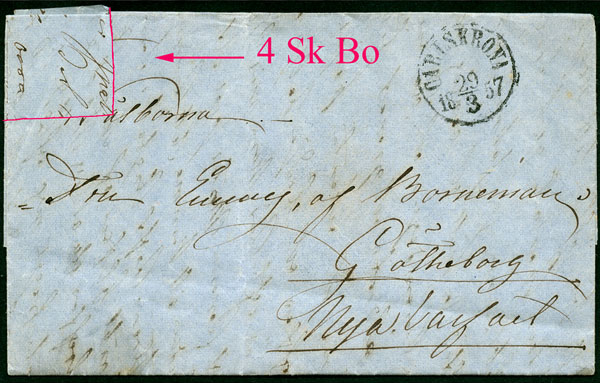 4 Sk Bo
CARLSKRONA
29
18 57
3
Wälborna
Emmy, af Borneman
Götheborg
Nya Varfvet